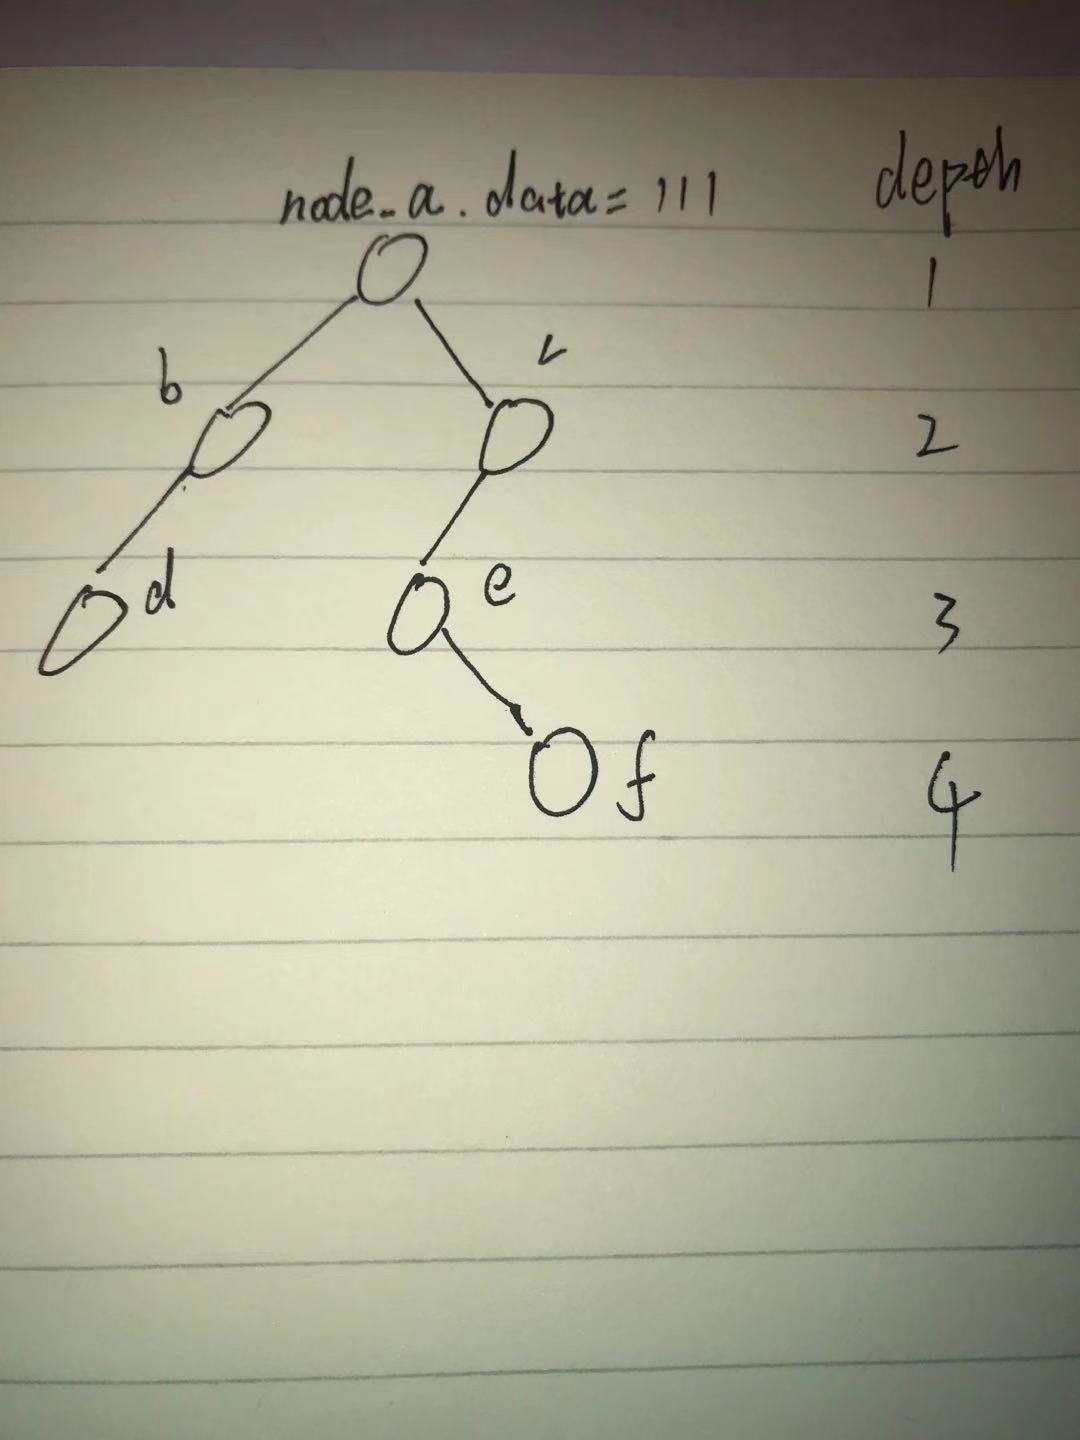 node_a.data=111 depth
1
b c
2
d e
3
f
4